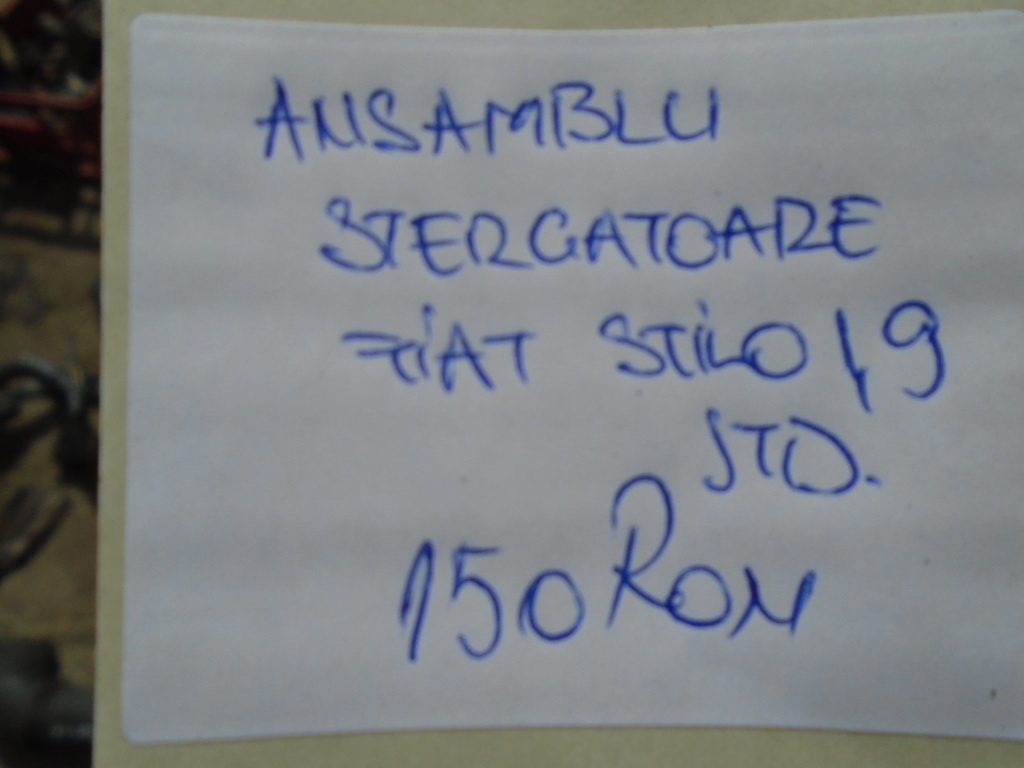 ANSAMBLU
STERGATOARE
FIAT STILO 1,9
JTD.
150 RON